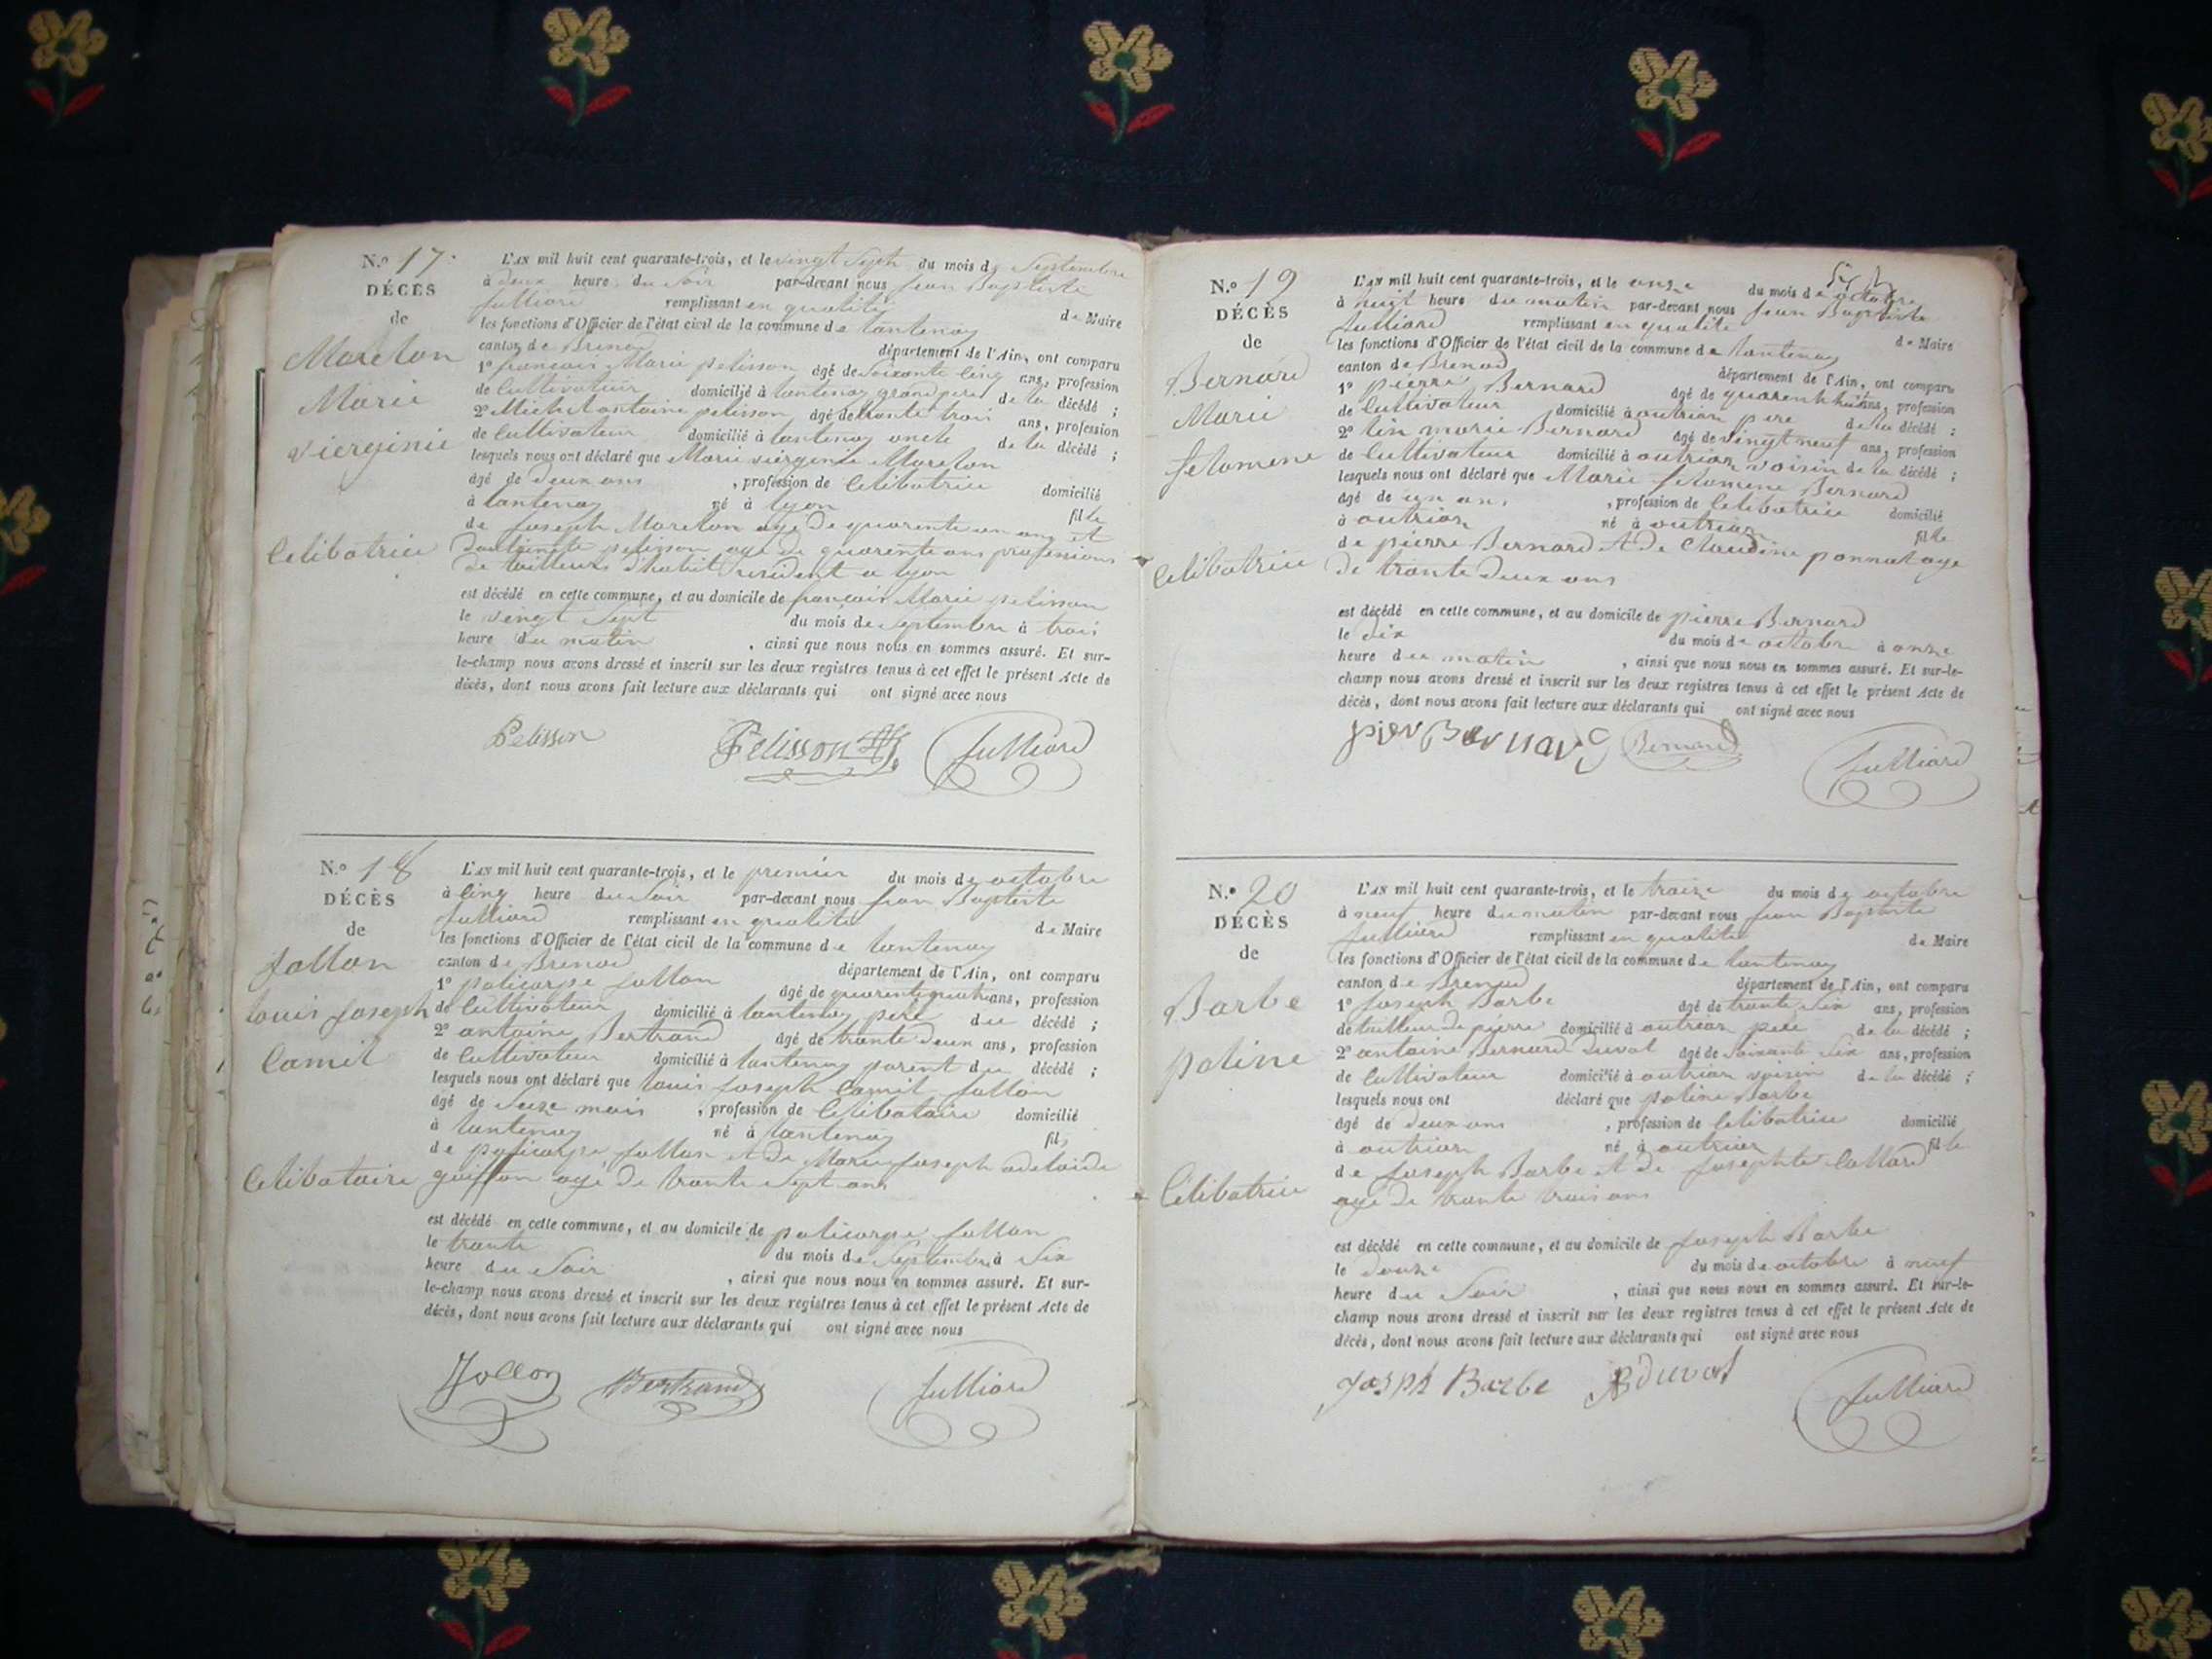 N.º 17.
DÉCÈS
de
Moreton
Marie
vierginie
Celibatrice
L'AN mil huit cent quarante-trois, et le vingt Sept du mois de Septembre
à deux heure du Soir par-devant nous Jean Baptiste
Julliard remplissant en qualité de Maire
les fonctions d'Officier de l'état civil de la commune de Lantenay
canton de Brenod département de l'Ain, ont comparu
1º francois Marie pelisson âgé de Soixante cinq ans, profession
de Cultivateur domicilié à lantenay grand pere de la décédé ;
2º Michel antoine pelisson âgé de trante trois ans, profession
de Cultivateur domicilié à lantenay oncle de la décédé ;
lesquels nous ont déclaré que Marie viergenie Moreton
âgé de deux ans , profession de Celibatrice domicilié
à lantenay né à lyon fille
de Joseph Moreton agé de quarente un ans et
pelisson agé de quarente ans professions
de tailleurs d'habit resident a lyon
est décédé en cette commune, et au domicile de francois Marie pelisson
le vingt Sept du mois de septembre à trois
heure du matin , ainsi que nous nous en sommes assuré. Et sur-
le-champ nous avons dressé et inscrit sur les deux registres tenus à cet effet le présent Acte de
décès, dont nous avons fait lecture aux déclarants qui ont signé avec nous
Pelisson Pelisson Julliard
N.º 18
DÉCÈS
de
Jollon
louis Joseph
Camil
Celibataire
L'AN mil huit cent quarante-trois, et le premier du mois de octobre
à Cinq heure du Soir par-devant nous Jean Baptiste
Julliard remplissant en qualité de Maire
les fonctions d'Officier de l'état civil de la commune de lantenay
canton de Brenod département de l'Ain, ont comparu
1º policarpe Jollon âgé de quarente quatre ans, profession
de Cultivateur domicilié à lantenay pere du décédé ;
2º antoine Bertrand âgé de trante deux ans, profession
de Cultivateur domicilié à lantenay parent du décédé ;
lesquels nous ont déclaré que louis Joseph Camil Jollon
âgé de Seize mois , profession de Celibataire domicilié
à lantenay né à lantenay fils
de policarpe Jollon et de Marie Joseph adelaide
agé de trante sept ans
est décédé en cette commune, et au domicile de policarpe Jollon
le trante du mois de Septembre à Six
heure du Soir , ainsi que nous nous en sommes assuré. Et sur-
le-champ nous avons dressé et inscrit sur les deux registres tenus à cet effet le présent Acte de
décès, dont nous avons fait lecture aux déclarants qui ont signé avec nous
Jollon Bertrand Julliard
N.º 19
DÉCÈS
de
Bernard
Marie
felomene
Celibatrice
L'AN mil huit cent quarante-trois, et le onze du mois de octobre
à huit heure du matin par-devant nous Jean Baptiste
Julliard remplissant en qualité de Maire
les fonctions d'Officier de l'état civil de la commune de lantenay
canton de Brenod département de l'Ain, ont comparu
1º pierre Bernard âgé de quarent huit ans, profession
de Cultivateur domicilié à outriar pere de la décédé ;
2º lin marie Bernard âgé de vingt neuf ans, profession
de Cultivateur domicilié à outriar voisin de la décédé ;
lesquels nous ont déclaré que Marie felomene Bernard
âgé de un an , profession de Celibatrice domicilié
à outriar né à outriar fille
de pierre Bernard et de Claudine ponnat age
de trante deux ans
est décédé en cette commune, et au domicile de pierre Bernard
le dix du mois de octobre à onze
heure du matin , ainsi que nous nous en sommes assuré. Et sur-le-
champ nous avons dressé et inscrit sur les deux registres tenus à cet effet le présent Acte de
décès, dont nous avons fait lecture aux déclarants qui ont signé avec nous
pier Bernard Bernard Julliard
N.º 20
DÉCÈS
de
Barbe
poline
Celibatrice
L'AN mil huit cent quarante-trois, et le traize du mois de octobre
à neuf heure du matin par-devant nous Jean Baptiste
Julliard remplissant en qualité de Maire
les fonctions d'Officier de l'état civil de la commune de lantenay
canton de Brenod département de l'Ain, ont comparu
1º Joseph Barbe âgé de trante Six ans, profession
de tailleur de pierre domicilié à outriar pere de la décédé ;
2º antoine Bernard Duvat âgé de Soixante Six ans, profession
de Cultivateur domicilié à outriar voisin de la décédé ;
lesquels nous ont déclaré que poline Barbe
âgé de deux ans , profession de Celibatrice domicilié
à outriar né à outriar fille
de Joseph Barbe et de Josephte Collard
agé de trante trois ans
est décédé en cette commune, et au domicile de Joseph Barbe
le douze du mois de octobre à neuf
heure du Soir , ainsi que nous nous en sommes assuré. Et sur-le-
champ nous avons dressé et inscrit sur les deux registres tenus à cet effet le présent Acte de
décès, dont nous avons fait lecture aux déclarants qui ont signé avec nous
Josph Barbe B duvat Julliard